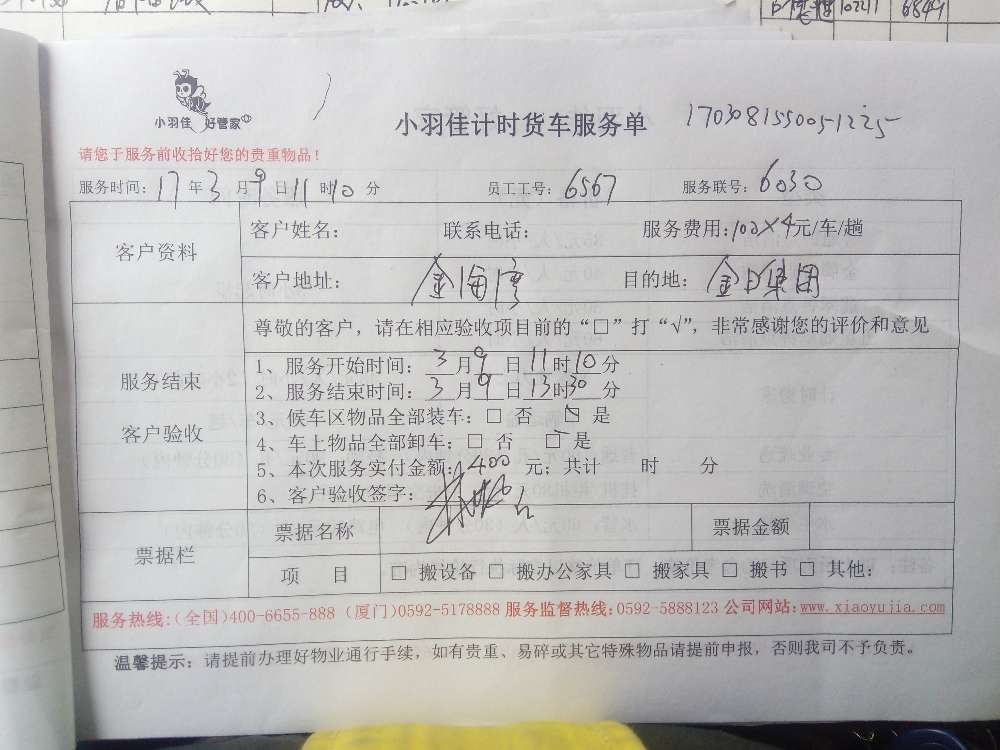 10241 6849
小羽佳 好管家
小羽佳计时货车服务单 170308155005-1225
请您于服务前收拾好您的贵重物品！
服务时间：17年3月9日11时10分 员工工号：6567 服务联号：6030
客户资料
客户姓名： 联系电话： 服务费用：100×4元/车/趟
客户地址： 金海湾 目的地： 金日集团
服务结束
客户验收
尊敬的客户，请在相应验收项目前的“□”打“√”，非常感谢您的评价和意见
1、服务开始时间：3月9日11时10分
2、服务结束时间：3月9日13时30分
3、候车区物品全部装车：□ 否 □ 是
4、车上物品全部卸车：□ 否 □ 是
5、本次服务实付金额：400 元；共计 时 分
6、客户验收签字：
票据栏
票据名称 票据金额
项 目 □ 搬设备 □ 搬办公家具 □ 搬家具 □ 搬书 □ 其他：
服务热线：(全国)400-6655-888 (厦门)0592-5178888 服务监督热线：0592-5888123 公司网站：www.xiaoyujia.com
温馨提示：请提前办理好物业通行手续，如有贵重、易碎或其它特殊物品请提前申报，否则我司不予负责。